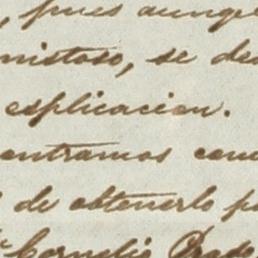 , pues aunque
mistoso, se de
esplicacion.
entramos con
de obtenerlo p
Cornelio Prado